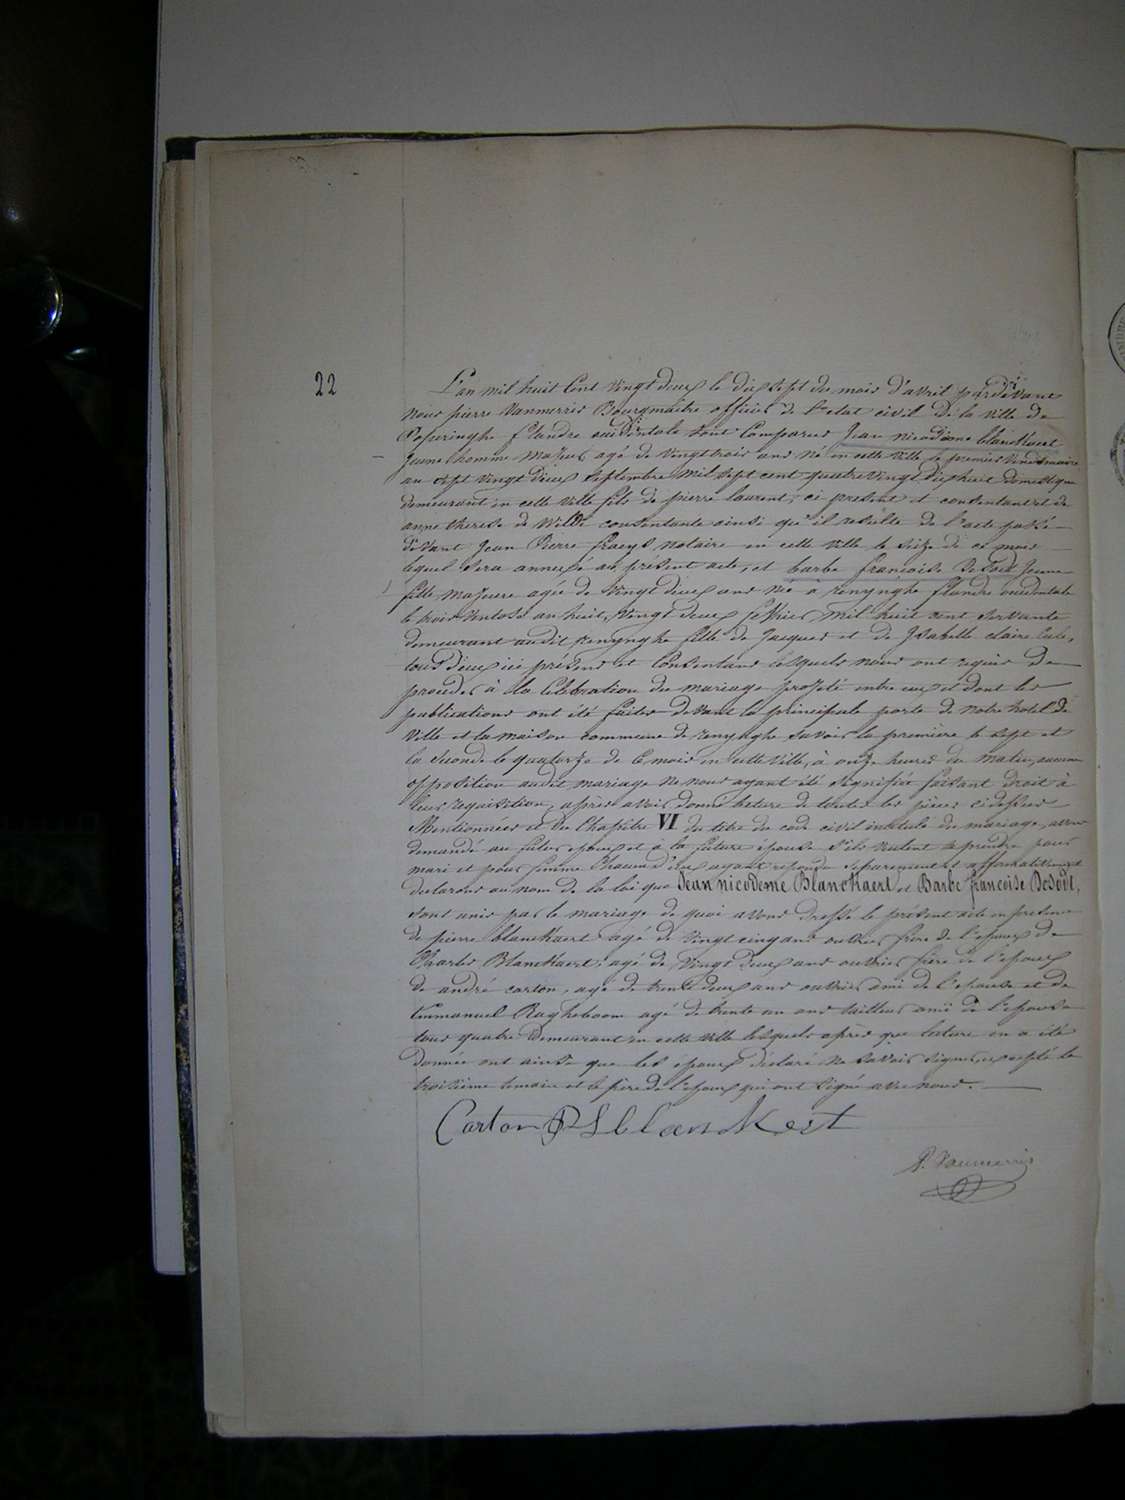 22
L'an mil huit Cent vingt deux le dix sept du mois d'avril pardevant
nous pierre Vanmerris Bourgmaitre officier de l'etat civil de la ville de
Poperinghe flandre occidentale sont Comparus Jean nicodeme blanckaert
Jeune homme majeur agé de vingt trois ans né en cette ville le premier Vendemiaire
an sept vingt deux septembre mil sept cent quatre vingt dix huit domestique
demeurant en cette ville fils de pierre laurent, ci présent et consentant et de
anne therese de Wilde consentante ainsi qu'il resulte de l'acte passé
devant Jean Pierre notaire en cette ville le seize de ce mois
lequel sera annexé au présent acte, et barbe françoise Desodt Jeune
fille majeure agée de vingt deux ans née à renynghe flandre occidentale
le trois ventose an huit, vingt deux fevrier mil huit cent servante
demeurant audit renynghe fille de Jacques et de Isabelle claire
tous deux ici présens et Consentans lesquels nous ont requis de
proceder à la Celebration du mariage projeté entre eux et dont les
publications ont été faites devant la principale porte de notre hotel de
ville et la maison commune de renynghe savoir la première le sept et
la seconde le quatorze de ce mois en cette ville, à onze heures du matin, aucune
opposition audit mariage ne nous ayant été signifiée faisant droit à
leur requisition, après avoir donné lecture de toutes les pièces cidessus
Mentionnées et du Chapitre VI du titre du code civil intitulé du mariage, avons
demandé au futur epoux et à la future epouse s'ils veulent se prendre pour
mari et pour femme Chacun d'eux ayant repondu separement et affirmativement
declarons au nom de la loi que Jean nicodeme Blanckaert et Barbe françoise Desodt,
sont unis par le mariage de quoi avons dressé le présent acte en presence
de pierre blanckaert agé de vingt cinq ans ouvrier frère de l'epoux de
Charles Blanckaert, agé de vingt deux ans ouvrier frère de l'epoux
de andré carton, agé de trente deux ans ouvrier ami de l'epouse et de
Emmanuel Ragheboom agé de trente un ans tailleur ami de l'epouse
tous quatre demeurant en cette ville lesquels après que lecture en a été
donnée ont ainsi que les époux déclaré ne savoir signer, excepté le
troisième temoin et le père de l'epoux qui ont signé avec nous.
Carton P L blanckert
P. Vanmerris